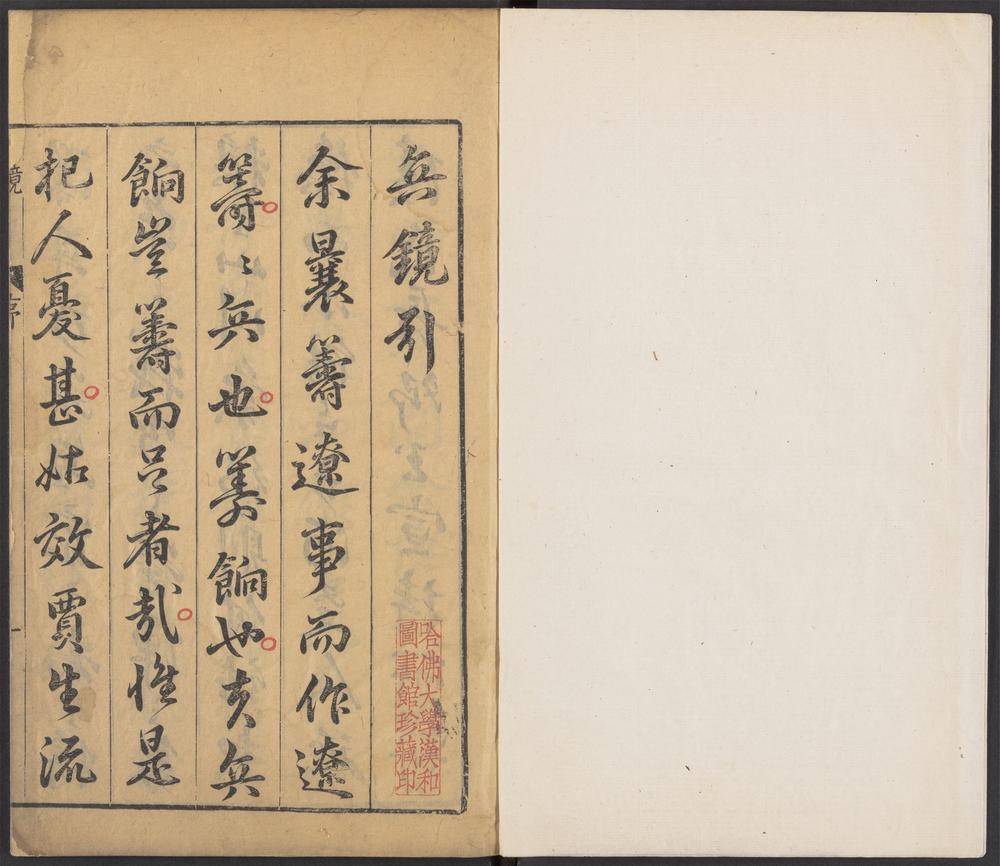 兵鏡引
余曩籌遼事而作遼
籌〻兵也籌餉也夫兵
餉豈籌而足者哉惟是
杞人憂甚姑效賈生流
鏡
序
一
哈佛大學漢和
圖書館珍藏印